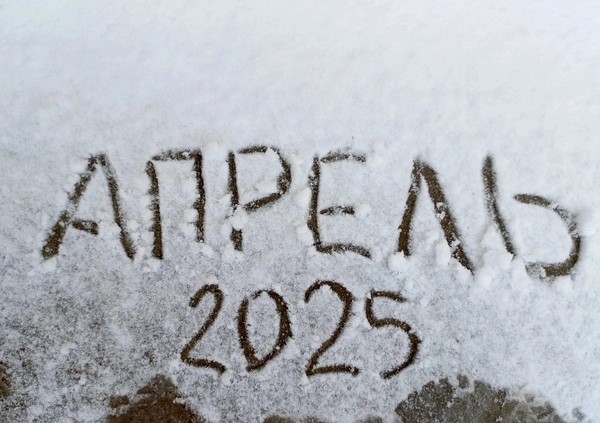 АПРЕЛЬ
2025